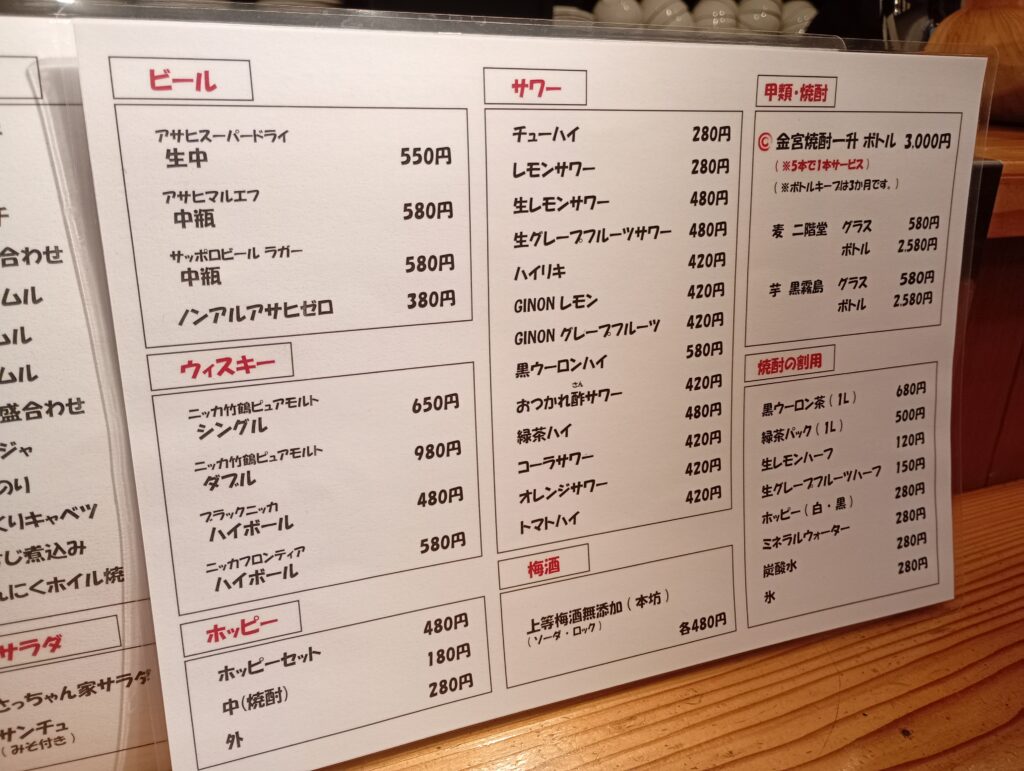 合わせ
ムル
ムル
ムル
盛合わせ
ジャ
のり
くりキャベツ
じ煮込み
んにくホイル焼
サラダ
さっちゃん家サラダ
サンチュ
(みそ付き)
ビール
アサヒスーパードライ
生中 550円
アサヒマルエフ
中瓶 580円
サッポロビール ラガー
中瓶 580円
ノンアルアサヒゼロ 380円
ウィスキー
ニッカ竹鶴ピュアモルト
シングル 650円
ニッカ竹鶴ピュアモルト
ダブル 980円
ブラックニッカ
ハイボール 480円
ニッカフロンティア
ハイボール 580円
ホッピー
ホッピーセット 480円
中(焼酎) 180円
外 280円
サワー
チューハイ 280円
レモンサワー 280円
生レモンサワー 480円
生グレープフルーツサワー 480円
ハイリキ 420円
GINON レモン 420円
GINON グレープフルーツ 420円
黒ウーロンハイ 580円
さん
おつかれ酢サワー 420円
緑茶ハイ 480円
コーラサワー 420円
オレンジサワー 420円
トマトハイ 420円
梅酒
上等梅酒無添加(本坊)
(ソーダ・ロック) 各480円
甲類・焼酎
金宮焼酎一升 ボトル 3.000円
(※5本で1本サービス)
(※ボトルキープは3か月です。)
麦 二階堂 グラス 580円
ボトル 2.580円
芋 黒霧島 グラス 580円
ボトル 2.580円
焼酎の割用
黒ウーロン茶(1L) 680円
緑茶パック(1L) 500円
生レモンハーフ 120円
生グレープフルーツハーフ 150円
ホッピー(白・黒) 280円
ミネラルウォーター 280円
炭酸水 280円
氷 280円